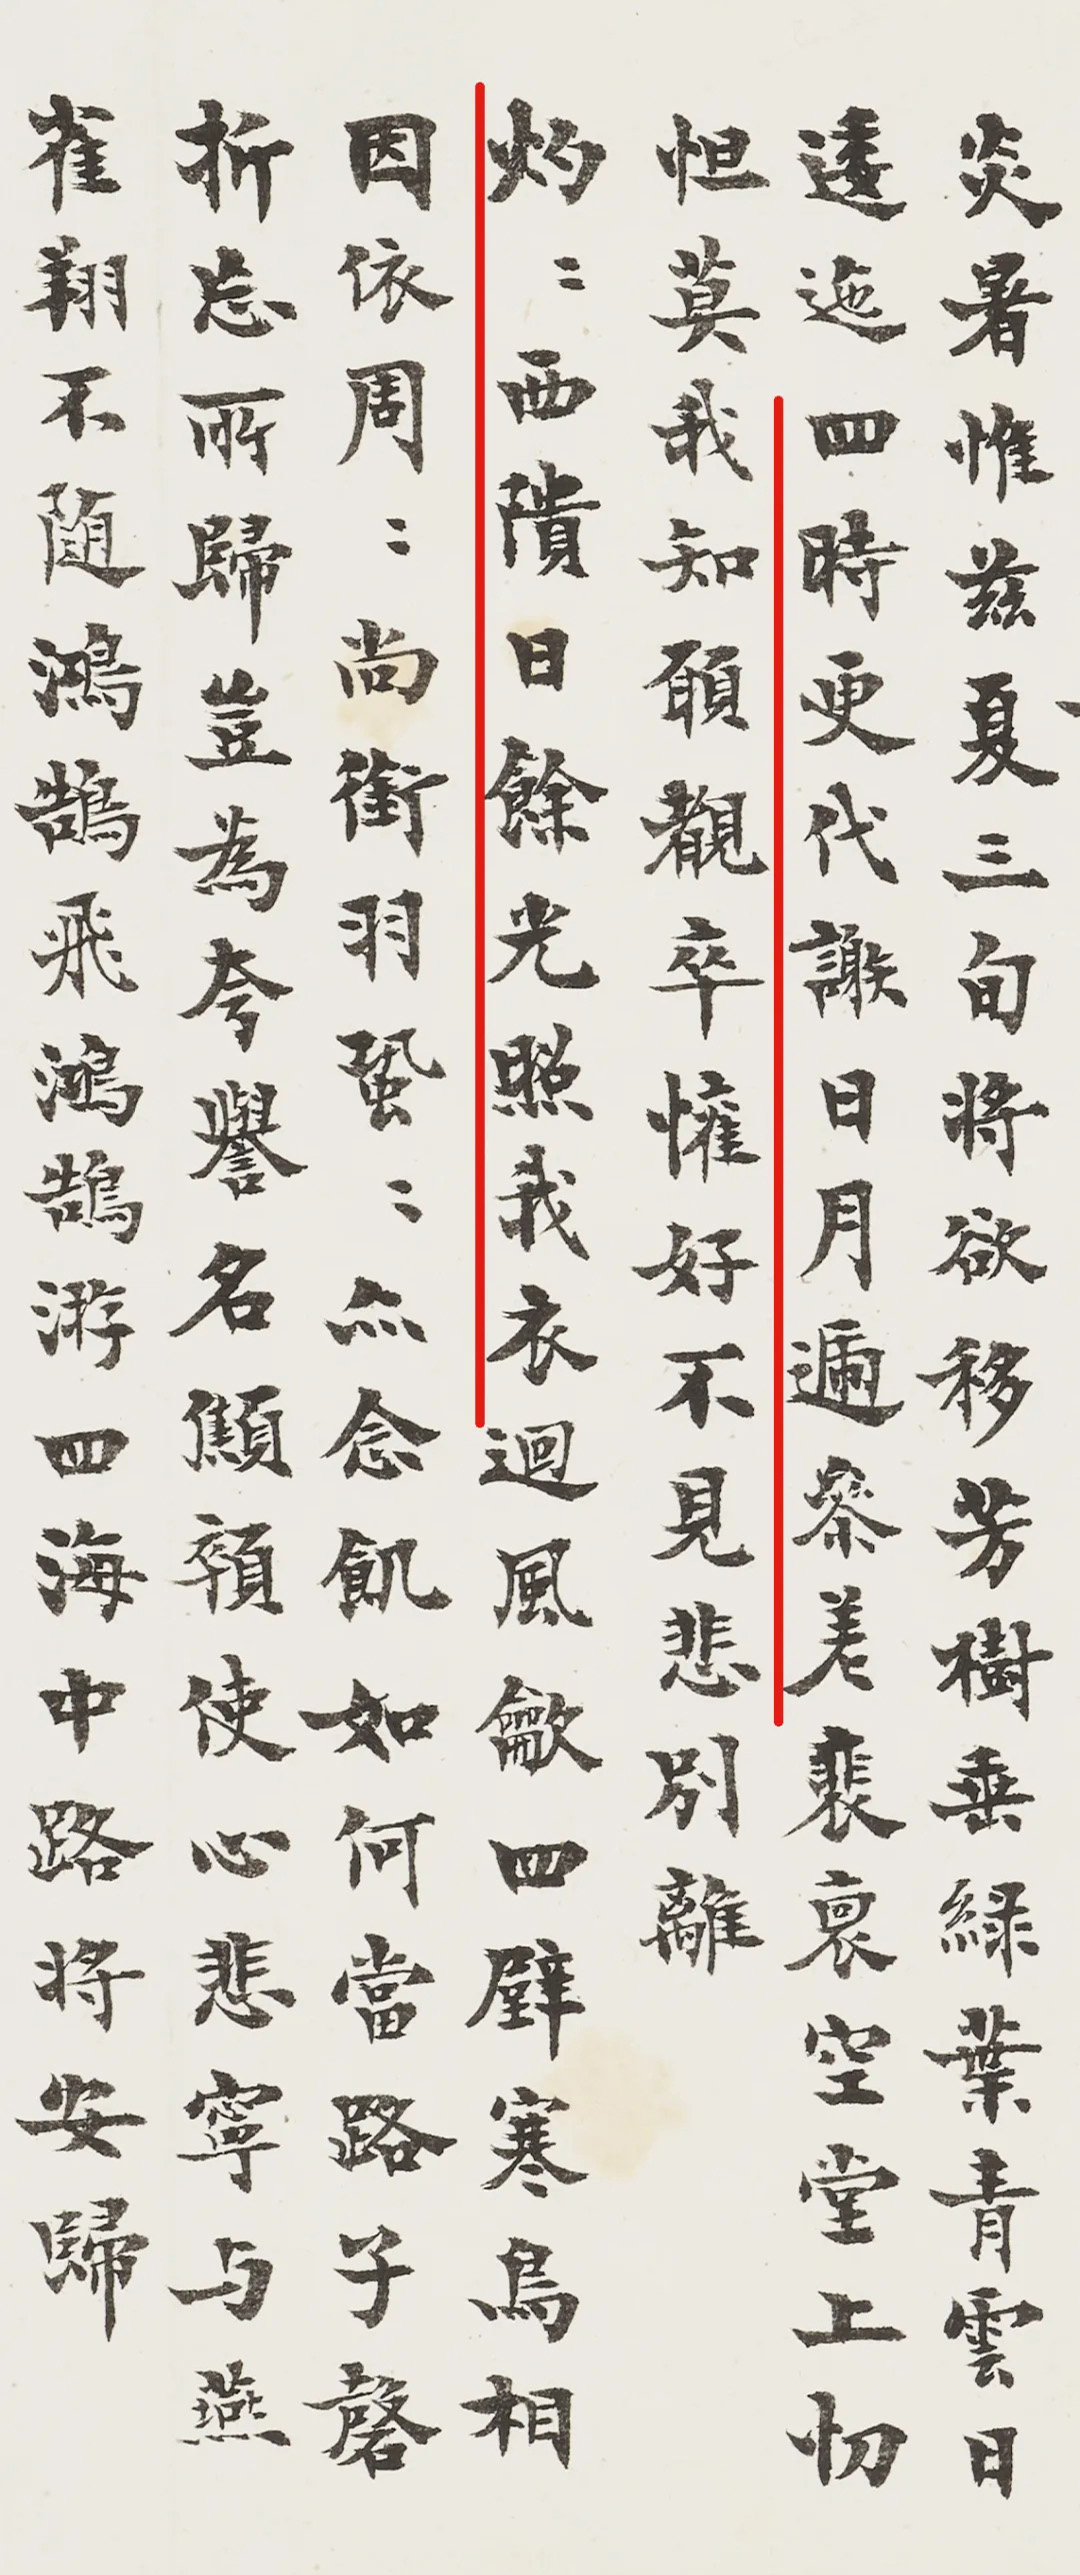 炎暑惟茲夏三旬将欲移芳樹垂緑葉青雲日
逶迆四時更代謝日月遞叅差裴裒空堂上忉
怛莫我知願覩卒懽好不見悲別離
灼〻西隤日餘光照我衣迴風歗四壁寒鳥相
因依周〻尚銜羽蛩〻亦念飢如何當路子磬
折忘所歸豈為夸譽名顦顇使心悲寧与燕
雀翔不随鴻鵠飛鴻鵠游四海中路将安歸